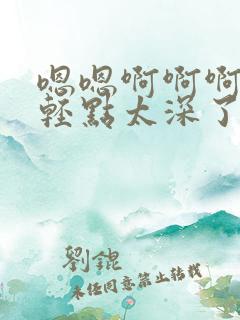 嗯嗯啊啊啊
輕點太深了
劉錕
未经同意禁止转载